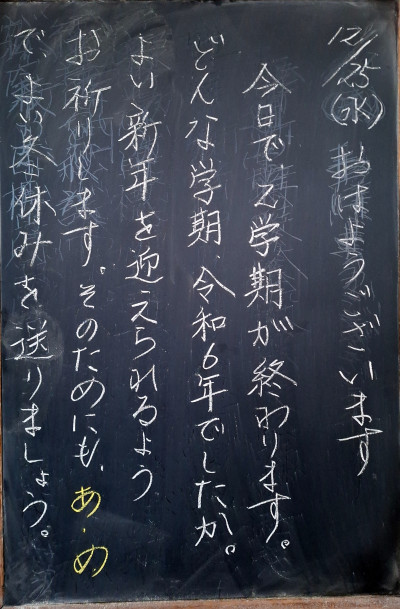 12/25(水) おはようございます
今日で2学期が終わります。
どんな学期、令和6年でしたか。
よい新年を迎えられるよう
お祈りします。そのためにも、あ・め
で、よい冬休みを送りましょう。